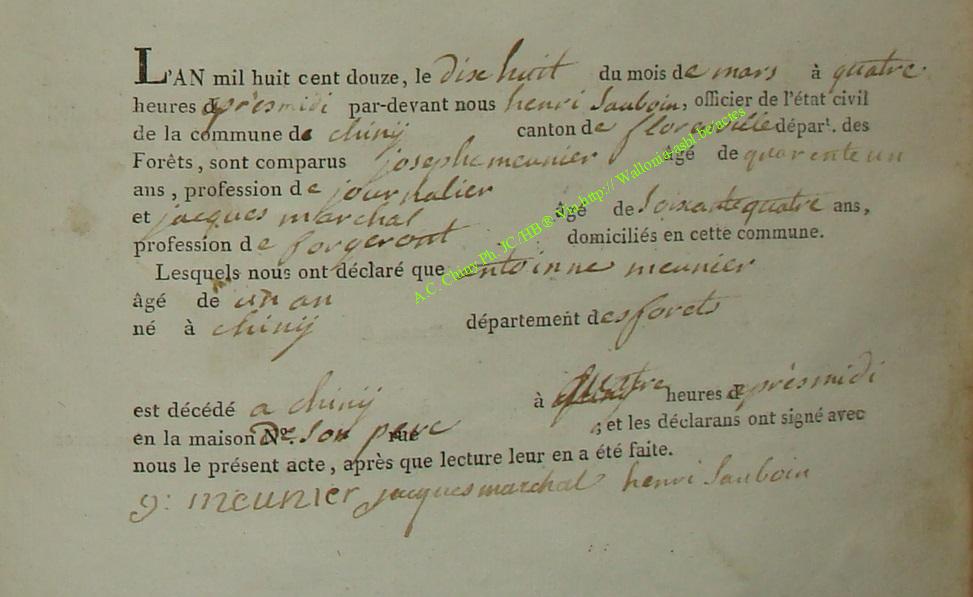 L'AN mil huit cent douze, le dix huit du mois de mars à quatre
heures d'près midi par-devant nous henri Sauboin, officier de l'état civil
de la commune de chinÿ canton de florenville départ. des
Forêts, sont comparus josephe meunier âgé de quarente un
ans, profession de journalier
et jacques marchal âgé de soixante quatre ans,
profession de forgeront domiciliés en cette commune.
Lesquels nous ont déclaré que entoinne meunier
âgé de un an
né à chinÿ département des forets
est décédé a chinÿ à quatre heures d'près midi
en la maison N.° de son pere rue ; et les déclarans ont signé avec
nous le présent acte, après que lecture leur en a été faite.
g: meunier jacques marchal henri Sauboin
A.C. Chiny Ph. JC /HB® Via http:// Wallonia-asbl.be/actes